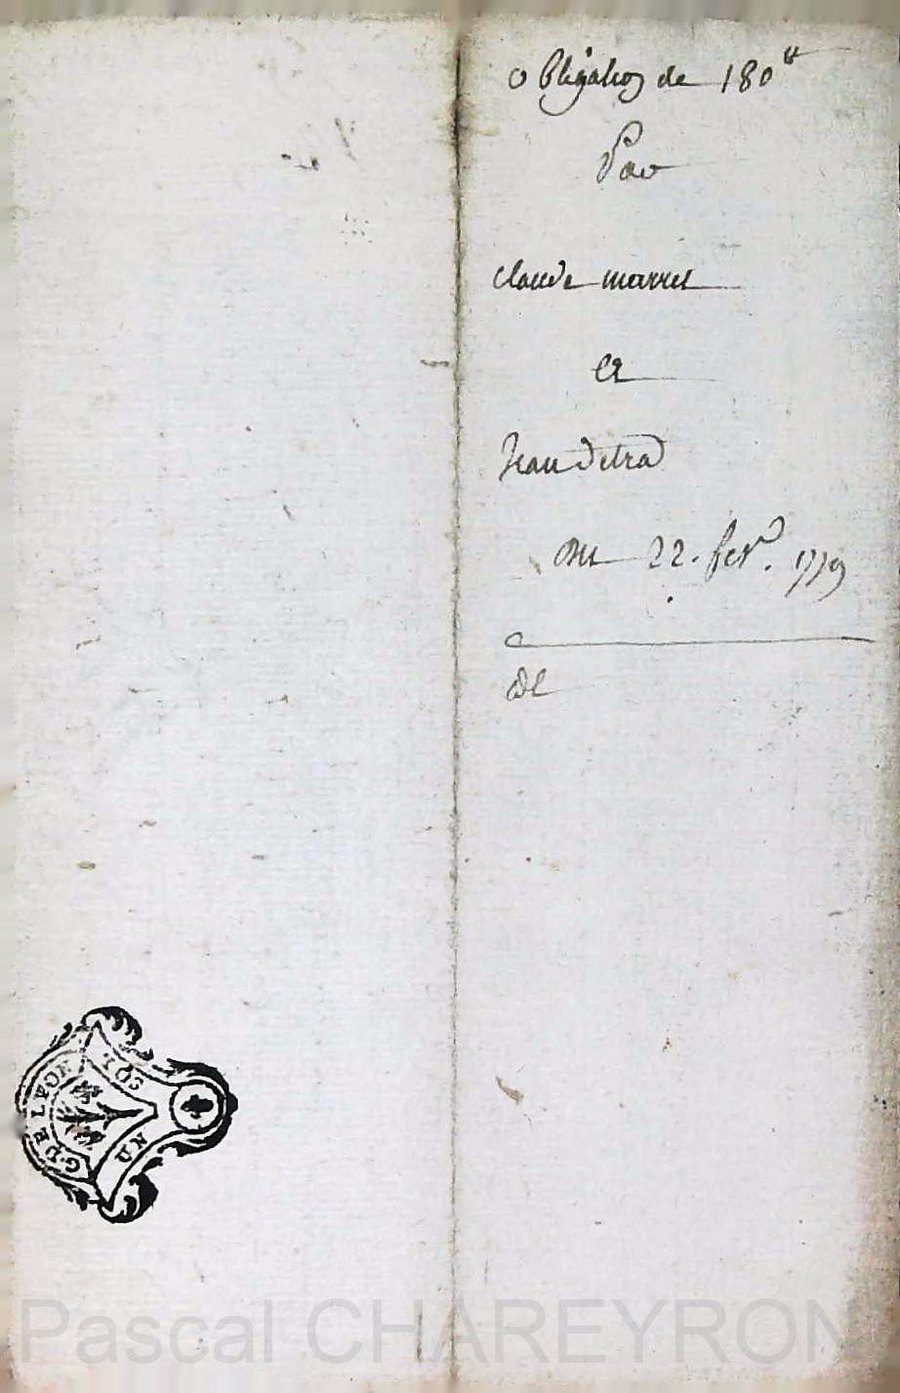 obligaõn de 180ᵗᵗ
Par
claude marret
et
Jean delrad
Du 22. fevr. 1779
de
G. DE LYON
UN SOL
Pascal CHAREYRON